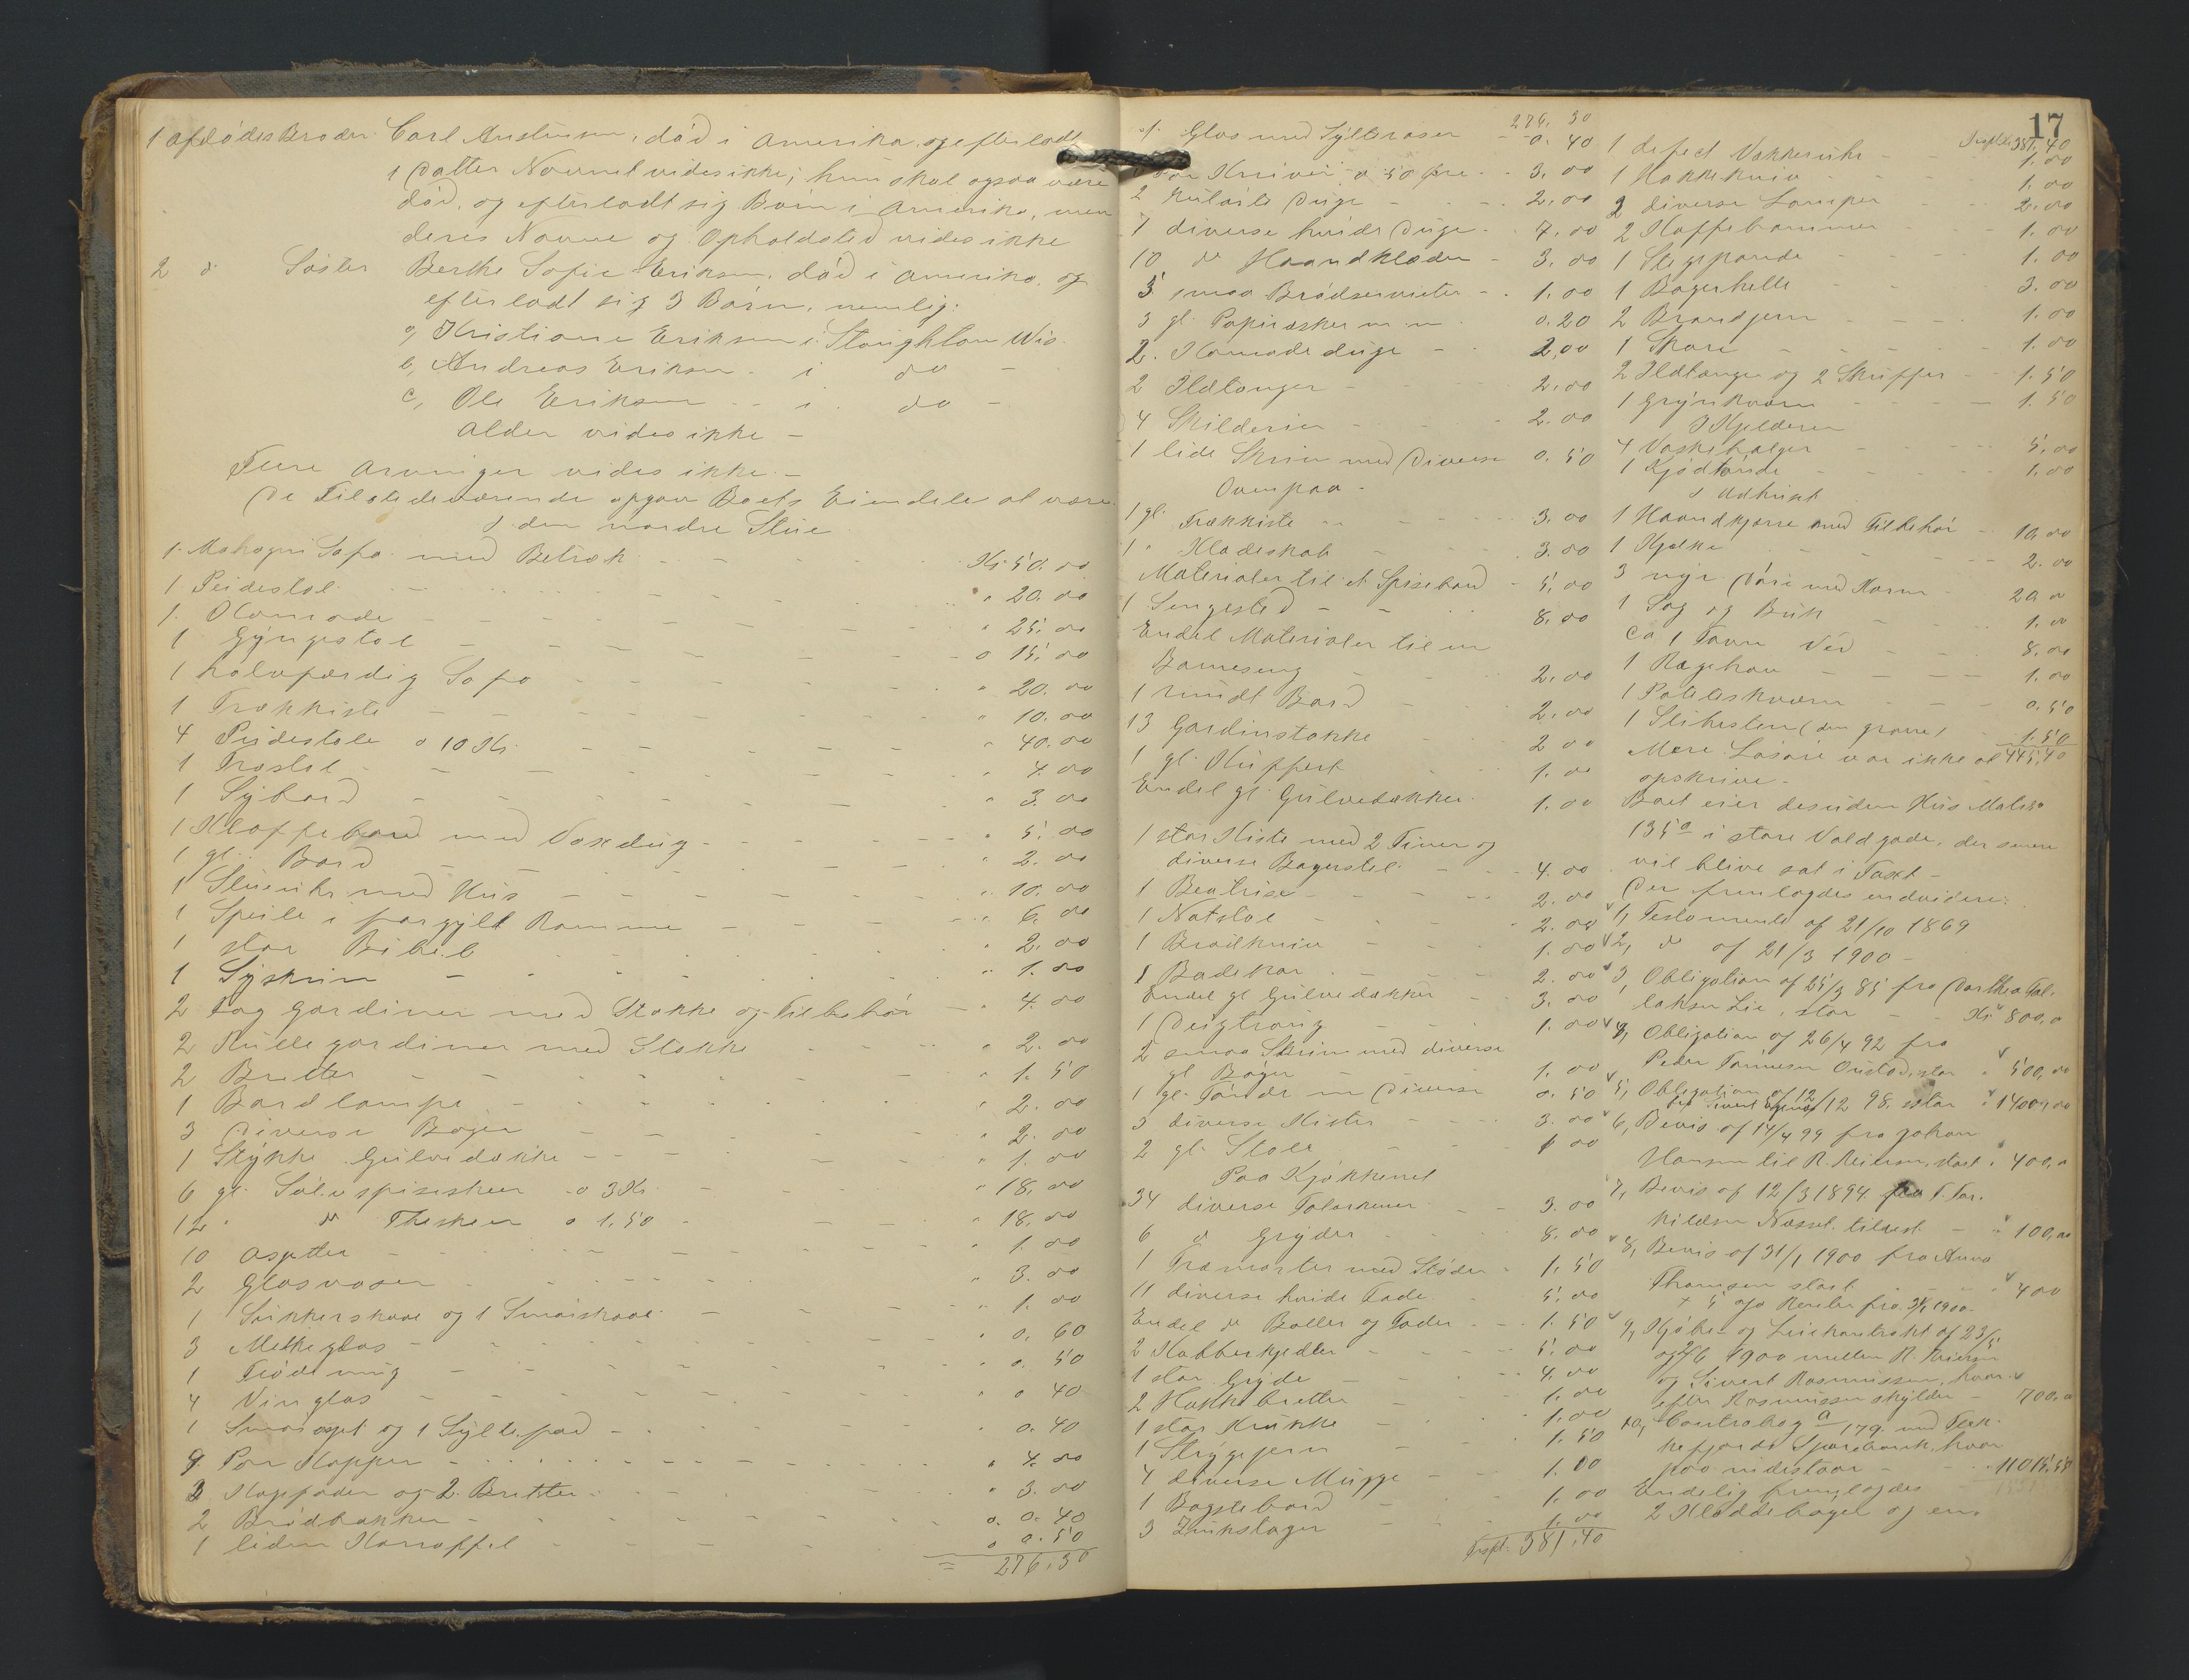 1 afdødes Broder Carl Austensen, død i Amerika, og efterladt
1 Datter Navnet vides ikke; hun skal ogsaa være
død, og efterladt sig Børn i Amerika, men
deres Navne og Opholdsted vides ikke
2 do Søster Berthe Sofie Eriksen, død i Amerika, og
efterladt sig 3 Børn, nemlig:
a, Kristiane Eriksen i Stoughton Wis.
b, Andreas Eriksen i do -
c, Ole Eriksen - - i do -
Alder vides ikke -
Flere Arvinger vides ikke. -
De Tilstedeværende opgav Boets Eiendele at være
I den nordre Stue
1. Mahogni Sofa med Betræk - - Kr 50.00
1 Peidestol - - " 20.00
1. Komode - - " 25.00
1 Gyngestol - - " 15.00
1 halvfærdig Sofa - - " 20.00
1 Trækkiste - - " 10.00
4 Peidestole a 10 Kr. - - " 40.00
1 Træstol - - " 4.00
1 Sybord - - " 3.00
1 Klappebord med Voxdug - - " 5.00
1 gl. Bord - - " 2.00
1 Stueuhr med Hus - - " 10.00
1 Speile i forgyldt Ramme - - " 6.00
1 stor Bibel - - " 2.00
1 Syskrin - - " 1.00
2 Fag Gardiner med Stokke og Tilbehør - " 4.00
2 Rullegardiner med Stokke - " 2.00
2 Bretter - - " 1.50
1 Bordlampe - - " 2.00
3 Diverse Bøger - - " 2.00
1 Stykke Gulvedække - - " 1.00
6 gl. Sølvspiseskeer a 3 Kr. - " 18.00
12 " do Theskeer a 1.50 - " 18.00
10 Asjetter - - " 1.00
2 Glasvaser - - " 3.00
1 Sukkerskaal og 1 Smørskaal - " 1.00
3 Melkeglas - - " 0.60
1 Flødemug - - " 0.50
4 Vinglas - - " 0 40
1 Smørasjet og 1 Syltefad - - " 0.40
9 Par Kopper - - " 4.00
3 Kopfader og 2 Bretter - - " 3.00
2 Brødbakker - - " 0.40
1 liden Karaffel - - " 0.50
= 276.30
276. 30
1 Glas med Sylteraser - - 0.40
Par Knive a 50 øre - - 3.00
2 kulørte Duge - - 2.00
7 diverse hvide Duge - 7.00
10 do Haandklæder - 3.00
5 smaa Brødservieter - 1.00
3 gl. Papiræsker m m 0.20
2. Komode duge - 2,00
2 Ildtanger - 2.00
4 Skilderier - 2.00
1 lide Skrin med Diverse 0.50
Ovenpaa -
1 gl. Trækkiste - - 3.00
1 " Klædeskab - 3.00
Materialer til et Spisebord - 5.00
1 Sengested - - 8.00
Endel Materialer til en
Barneseng - 2.00
1 rundt Bord - 2.00
13 Gardinstokke - 2 00
1 gl. Kuffert - 1.00
Endel gl. Gulvedækker 1.00
1 stor Kiste med 2 Tiner og
diverse Bagerstel - - 4.00
1 Beatrise - - 2.00
1 Natstol - - 2.00
1 Brødkniv - - 1.00
1 Badekar - - 2.00
Endel gl. Gulvedækker - 3.00
1 Deigtroug - - 1.00
2 smaa Skrin med diverse
gl. Bøger - 1.00
1 gl. Tønde m Diverse 0.50
3 diverse Kister - 3.00
2 gl. Stole - 1 00
Paa Kjøkkenet
34 diverse Talerkener - 3.00
6 do Gryder - 8.00
1 Træmorter med Støder - 1.50
11 diverse hvide Fade - 5.00
Endel do Boller og Fader - 1.50
2 Kobberkjedler - 5.00
1 stor Gryde - 4.00
2 Hakkebretter - 1.00
1 stor Krukke - 1.00
1 Strygejern - 1.50
4 diverse Mugge - 1.00
1 Bagstebord - 1.00
3 Zinkstager - 1.00
Trsp. 381.40
17
Trsp. 381.40
1 defect Vækkeruhr - 1.00
1 Hakkekniv - 1.00
2 diverse Lamper - 2.00
2 Kaffebrænnere - 1.00
1 Stegepande - 1.00
1 Bagerhelle - 3.00
2 Brandjern - 1.00
1 Skare - 1.00
2 Ildtænger og 2 Skuffer - 1.50
1 Grynkværn - 1.50
I Kjelderen
4 Vaskebalger - 5.00
1 Kjødtønde - 1.00
I Udhuset
1 Haandkjærre med Tilbehør - 10.00
1 Kjelke - 2.00
3 nye Døre med Karm - 20 00
1 Sag og Buk - 1.00
ca 1 Favn Ved - 8.00
1 Ragehov - 1.00
1 Poteteskværn - 0.50
1 Slibesten (den graae) - 1.50
Mere Løsøre var ikke at 445,40
opskrive.
Boet eier desuden Hus Matr№
135a i store Voldgade, der senere
vil blive sat i Taxt -
Der fremlagdes endvidere:
1, Testamente af 21/10 1869
2, do af 21/3 1900 -
3, Obligation af 25/3 85 fra Dorthea Tol-
laksen Lie, stor - Kr 800,0
4, Obligation af 26/4 92 fra
Peder Tønnesen Ousdal, stor " 500,00
5, Obligation af 12/12 98. stor " 1400,00
6, Bevis af 14/4 99 fra Johan
Hansen til R. Reiersen, stort " 400,0
7, Bevis af 12/3 1894 fra T. Tor-
kildsen Næsset tilrest - " 100,00
8, Bevis af 31/1 1900 fra Anna
Thomsen stort - " 400
+ 5 o/o Renter fra 31/1 1900.
9, Kjøbe- og Leiekontrakt af 23/5
og 2/6 1900 mellem R. Reiersen
og Sivert Rasmussen, hvor-
efter Rasmussen skylder - 700,0
10, Contrabog a/179 med Flek-
kefjords Sparebank, hvor
paa indestaar - 11015,58
Endelig fremlagdes
2 Kladdebøger og en